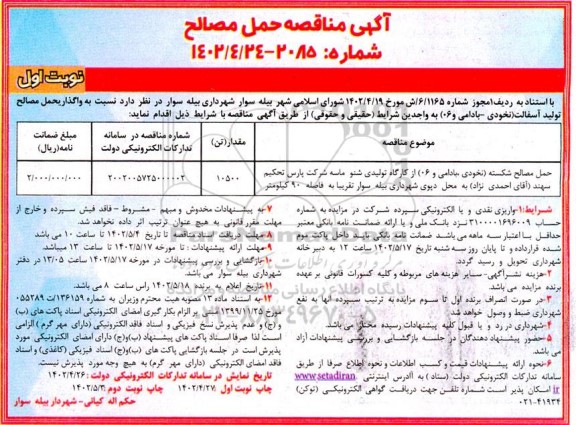 آگهی مناقصه حمل مصالح
شماره: ۲۰۸۵-۱۴۰۲/۴/۲۴
نوبت اول
با استناد به ردیف۱مجوز شماره ۶/۱۱۶۵/ش مورخ ۱۴۰۲/۴/۱۹ شورای اسلامی شهر بیله سوار شهرداری بیله سوار در نظر دارد نسبت به واگذاریحمل مصالح
تولید آسفالت(نخودی -بادامی و۰۶) به واجدین شرایط (حقیقی و حقوقی) از طریق آگهی مناقصه با شرایط ذیل اقدام نماید:
موضوع مناقصه
مقدار(تن)
شماره مناقصه در سامانه تدارکات الکترونیکی دولت
مبلغ ضمانت نامه(ریال)
حمل مصالح شکسته (نخودی ،بادامی و ۰۶) از کارگاه تولیدی شنو ماسه شرکت پارس تحکیم
سهند (آقای احمدی نژاد) به محل دپوی شهرداری بیله سوار تقریبا به فاصله ۹۰ کیلومتر
۱۰۵۰۰
۲۰۰۲۰۰۵۷۲۵۰۰۰۰۰۲
۲/۰۰۰/۰۰۰/۰۰۰
شرایط:۱-واریزی نقدی و یا الکترونیکی سپرده شرکت در مزایده به شماره
حساب ۲۱۰۰۰۰۱۶۹۶۰۰۹ نزد بانک ملی و یا ارائه ضمانت نامه بانکی معتبر
حداقل با اعتبار سه ماهه می‌باشد. ضمانت نامه بانکی باید در داخل پاکت مهر و موم
شده قرارداده و تا پایان روز سه شنبه تاریخ ۱۴۰۲/۵/۱۷ ساعت ۱۲ به دبیر خانه
شهرداری تحویل و رسید گردد.
۲-هزینه نشرآگهی-سایر هزینه های مربوطه و کلیه کسورات قانونی بر عهده
برنده مزایده می باشد.
۳-در صورت انصراف برنده اول تا سوم مزایده به ترتیب سپرده آنها به نفع
شهرداری ضبط و وصول خواهد شد.
۴-شهرداری در رد و یا قبول کلیه پیشنهادات رسیده مختار می باشد.
۵-حضور پیشنهاد دهندگان در جلسه بازگشایی و بررسی پیشنهادات آزاد
می باشد.
۶-نحوه ارائه پیشنهادات قیمت و کسب اطلاعات و نحوه اطلاع صرفا از طریق
سامانه تدارکات الکترونیکی دولت (ستاد) به آدرس اینترنتی www.setadiran.
ir امکان پذیر است شماره تلفن جهت دریافت گواهی الکترونیکی (توکن)
۰۲۱-۴۱۹۳۴
۷-به پیشنهادات مخدوش و مبهم - مشروط - فاقد فیش سپرده و خارج از
مهلت مقرر قانونی به هیچ عنوان ترتیب اثر داده نخواهد شد.
۸-مهلت دریافت اسناد مناقصه تا تاریخ ۱۴۰۲/۵/۴ تا ساعت ۱۰ می باشد
۹-مهلت ارائه پیشنهادات : تا مورخه ۱۴۰۲/۵/۱۷ تا ساعت ۱۳ میباشد.
۱۰-بازگشایی و بررسی پیشنهادات در مورخه ۱۴۰۲/۵/۱۷ ساعت ۱۳:۰۵ در دفتر
شهرداری بیله سوار می باشد.
۱۱-تاریخ اعلام به برنده ۱۴۰۲/۵/۱۸ راس ساعت ۸ می باشد.
۱۲-به استناد ماده ۱۳ مصوبه هیت محترم وزیران به شماره ۱۳۶۱۵۹/ت ۵۵۲۸۹ه
مورخ ۱۳۹۹/۱۱/۲۵ بر الزام بکارگیری امضای الکترونیکی اسناد پاکت های (ب)
و (ج) و عدم پذیرش نسخ فیزیکی و اسناد فاقد الکترونیکی (دارای مهر گرم) الزامی
است لذا صرفا اسناد پاکت های پیشنهاد (ب)و(ج) دارای امضای الکترونیکی مورد
پذیرش است در جلسه بازگشایی پاکت های (ب)و(ج) اسناد فیزیکی (کاغذی) و اسناد
فاقد امضای الکترونیکی (دارای مهر گرم) به هیچ وجه مورد پذیرش نیست.
تاریخ نمایش در سامانه تدارکات الکترونیکی دولت: ۱۴۰۲/۴/۲۶
چاپ نوبت اول :۱۴۰۲/۴/۲۷ چاپ نوبت دوم :۱۴۰۲/۵/۳
حکم اله کیانی- شهردار بیله سوار